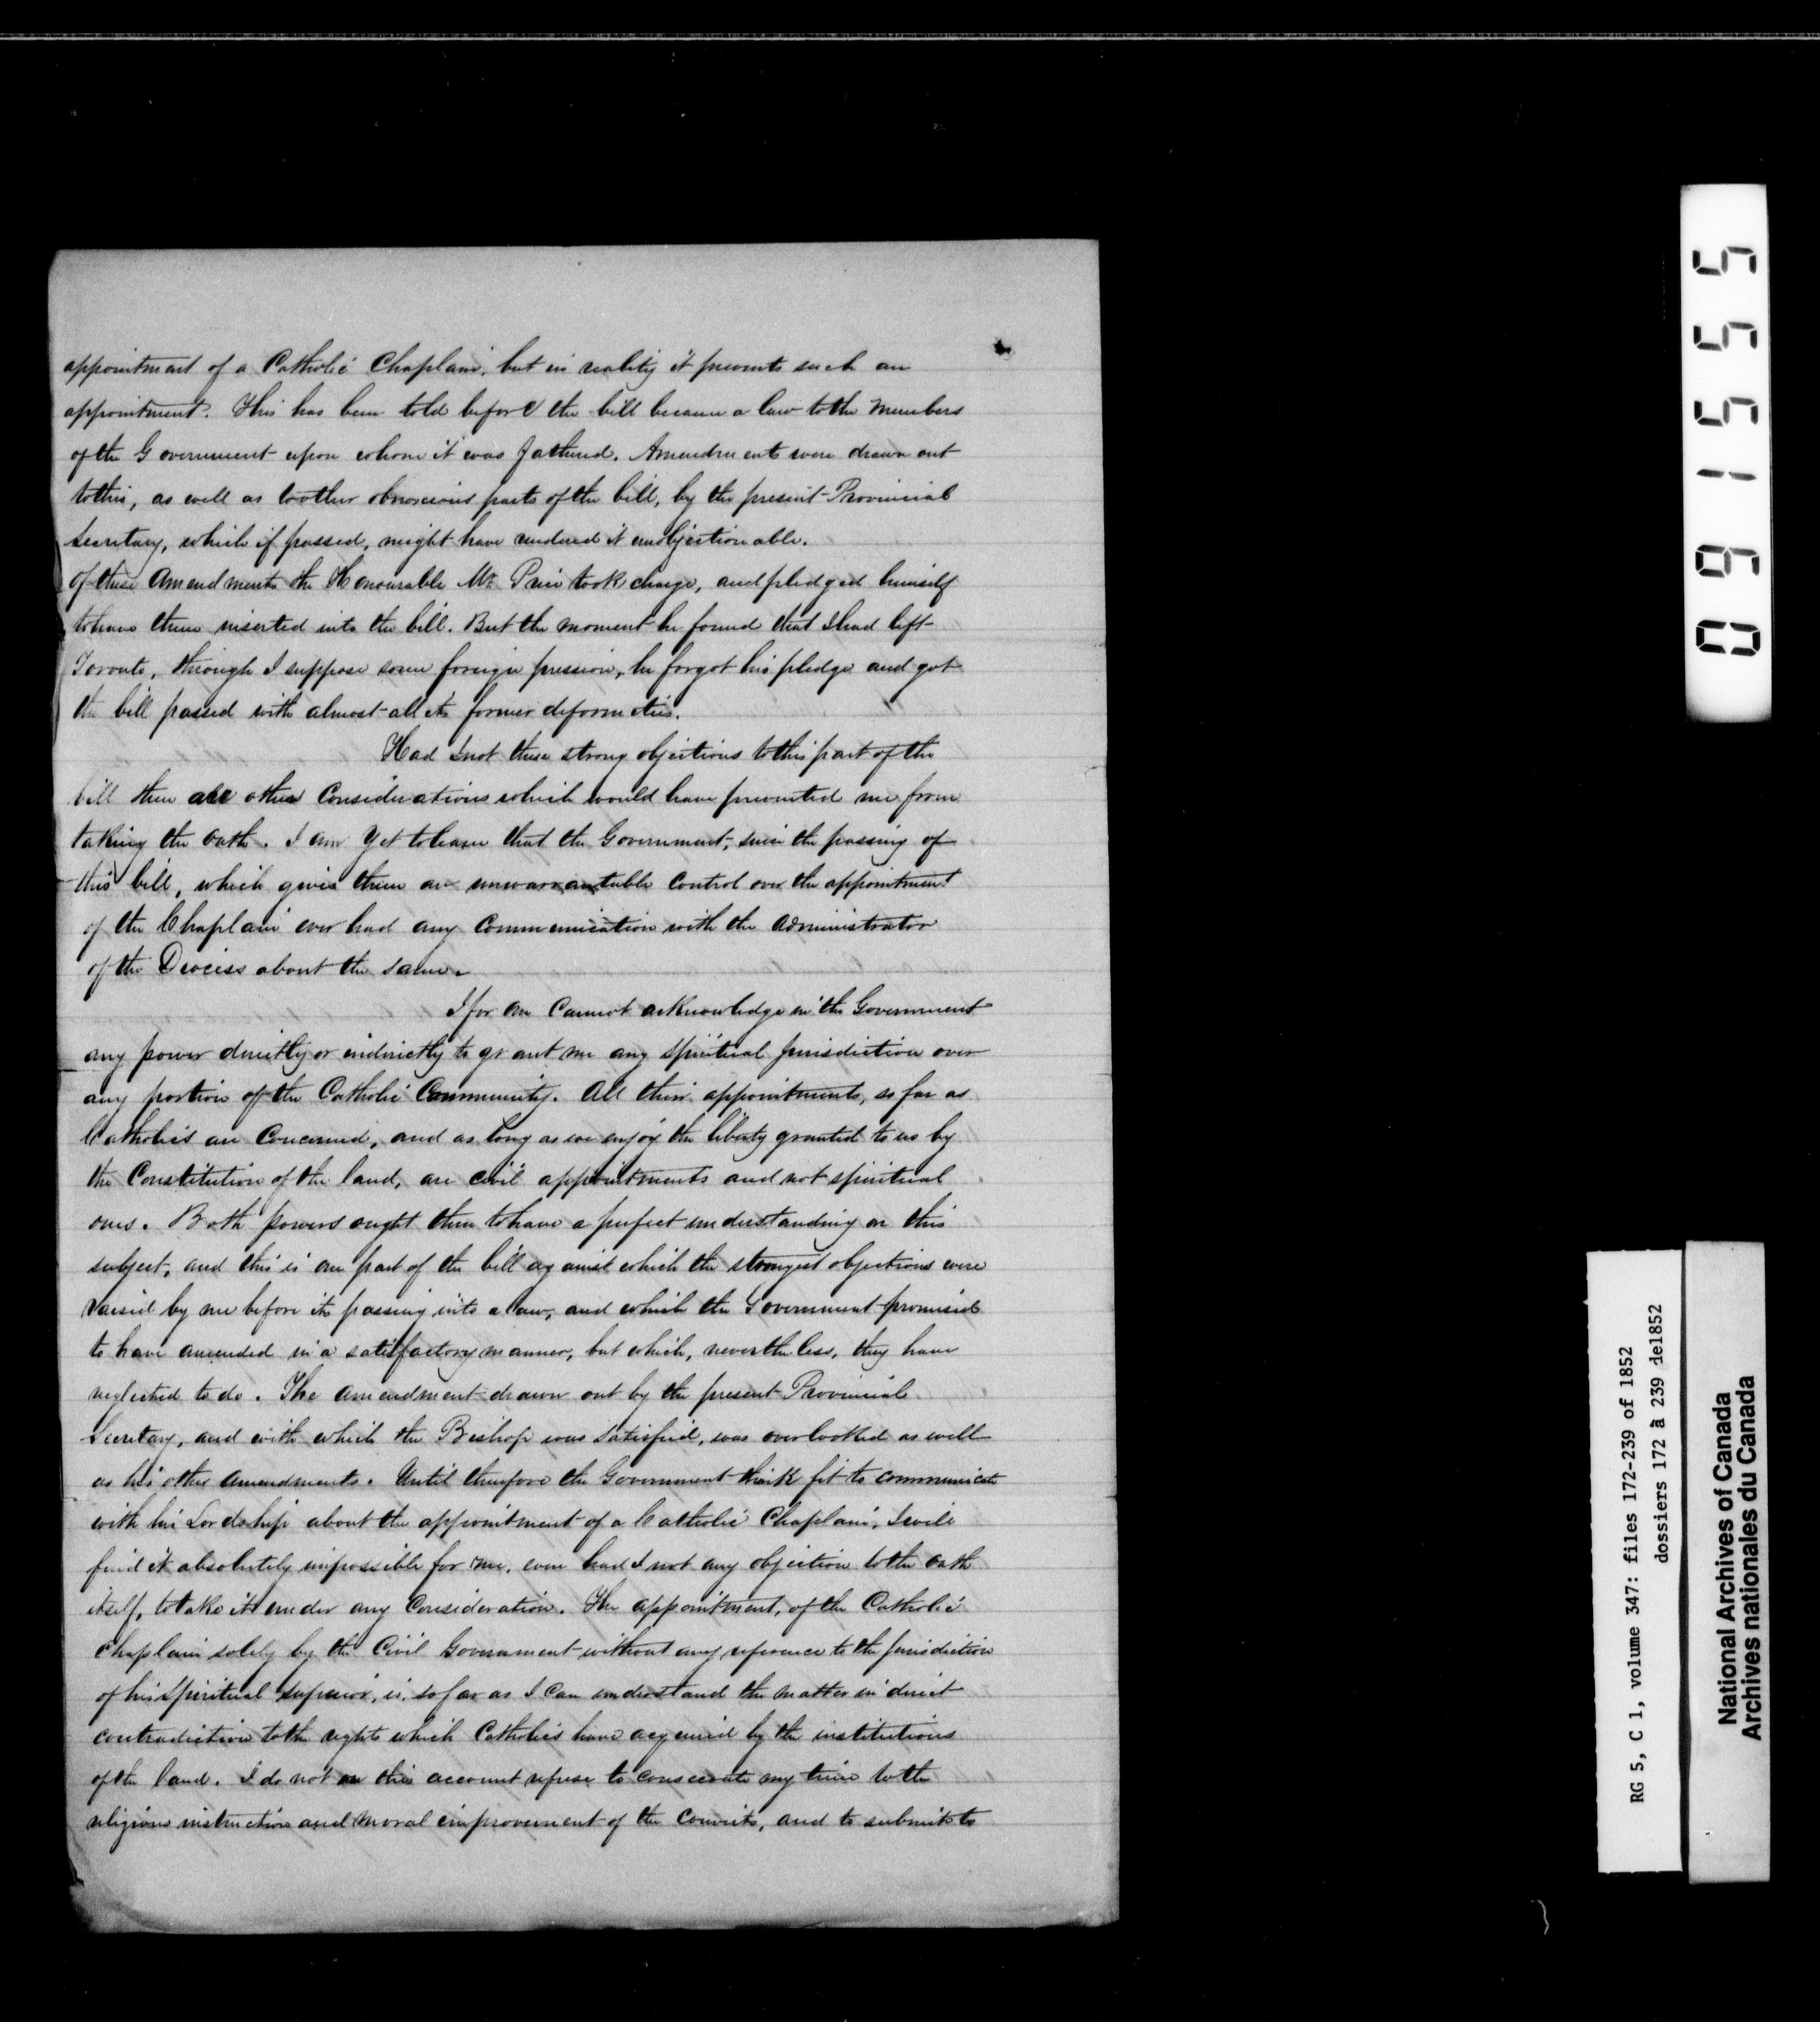 appointment of a Catholic Chaplain, but in reality it prevents such an
appointment. This has been told before the bill became a law to the Members
of the Government upon whom it was fathered. Amendments were drawn out
to this, as well as to other obnoxious parts of the bill, by the present Provincial
Secretary, which if passed, might have rendered it unobjectionable.
Of these Amendments the Honourable Mr. Price took charge, and pledged himself
to have them inserted into the bill. But the moment he found that I had left
Toronto, through I suppose some foreign pression, he forgot his pledge and got
the bill passed with almost all its former deformities.
Had I not these strong objections to this part of the
bill there are other Considerations which would have prevented me from
taking the oath. I am Yet to learn that the Government, since the passing of
this bill, which gives them an unwarrantable Control over the appointment
of the Chaplain ever had any Communication with the Administrator
of the Diocess about the same.
I for one Cannot acknowledge in the Government
any power directly or indirectly to grant me any spiritual Jurisdiction over
any portion of the Catholic Community. All their appointments, so far as
Catholics are Concerned, and as long as we enjoy the liberty granted to us by
the Constitution of the land, are civil appointments and not spiritual
ones. Both powers ought then to have a perfect understanding on this
subject, and this is one part of the bill against which the strongest objections were
raised by me before its passing into a law, and which the Government promised
to have amended in a satisfactory manner, but which, nevertheless, they have
neglected to do. The Amendment drawn out by the present Provincial
Secretary, and with which the Bishop was Satisfied, was overlooked as well
as his other Amendments. Until therefore the Government think fit to communicate
with his Lordship about the appointment of a Catholic Chaplain, I will
find it absolutely impossible for me, even had I not any objection to the oath
itself, to take it under any Consideration. The appointment, of the Catholic
Chaplain solely by the Civil Government without any reference to the Jurisdiction
of his Spiritual Superior, is, so far as I Can understand the matter in direct
contradiction to the rights which Catholics have acquired by the institutions
of the land. I do not on this account refuse to consecrate my time to the
religious instruction and Moral improvement of the Convicts, and to submit to
091555
RG 5, C 1, volume 347: files 172-239 of 1852
dossiers 172 à 239 de1852
National Archives of Canada
Archives nationales du Canada